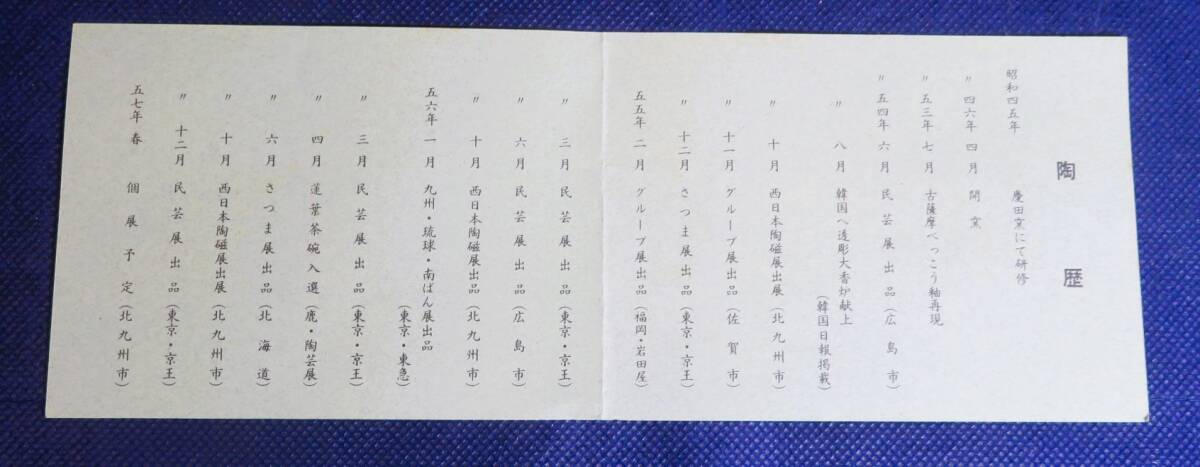 陶歴
昭和四五年 慶田窯にて研修
〃四六年四月 開窯
〃五三年七月 古薩摩べっこう釉再現
〃五四年六月 民芸展出品(広島市)
〃 八月 韓国へ透彫大香炉献上
(韓国日報掲載)
〃 十月 西日本陶磁展出展(北九州市)
〃 十一月 グループ展出品(佐賀市)
〃 十二月 さつま展出品(東京・京王)
五五年 二月 グループ展出品(福岡・岩田屋)
〃 三月 民芸展出品(東京・京王)
〃 六月 民芸展出品(広島市)
〃 十月 西日本陶磁展出品(北九州市)
五六年 一月 九州・琉球・南ばん展出品
(東京・東急)
〃 三月 民芸展出品(東京・京王)
〃 四月 蓮葉茶碗入選(鹿・陶芸展)
〃 六月 さつま展出品(北海道)
〃 十月 西日本陶磁展出展(北九州市)
〃 十二月 民芸展出品(東京・京王)
五七年 春 個展予定(北九州市)